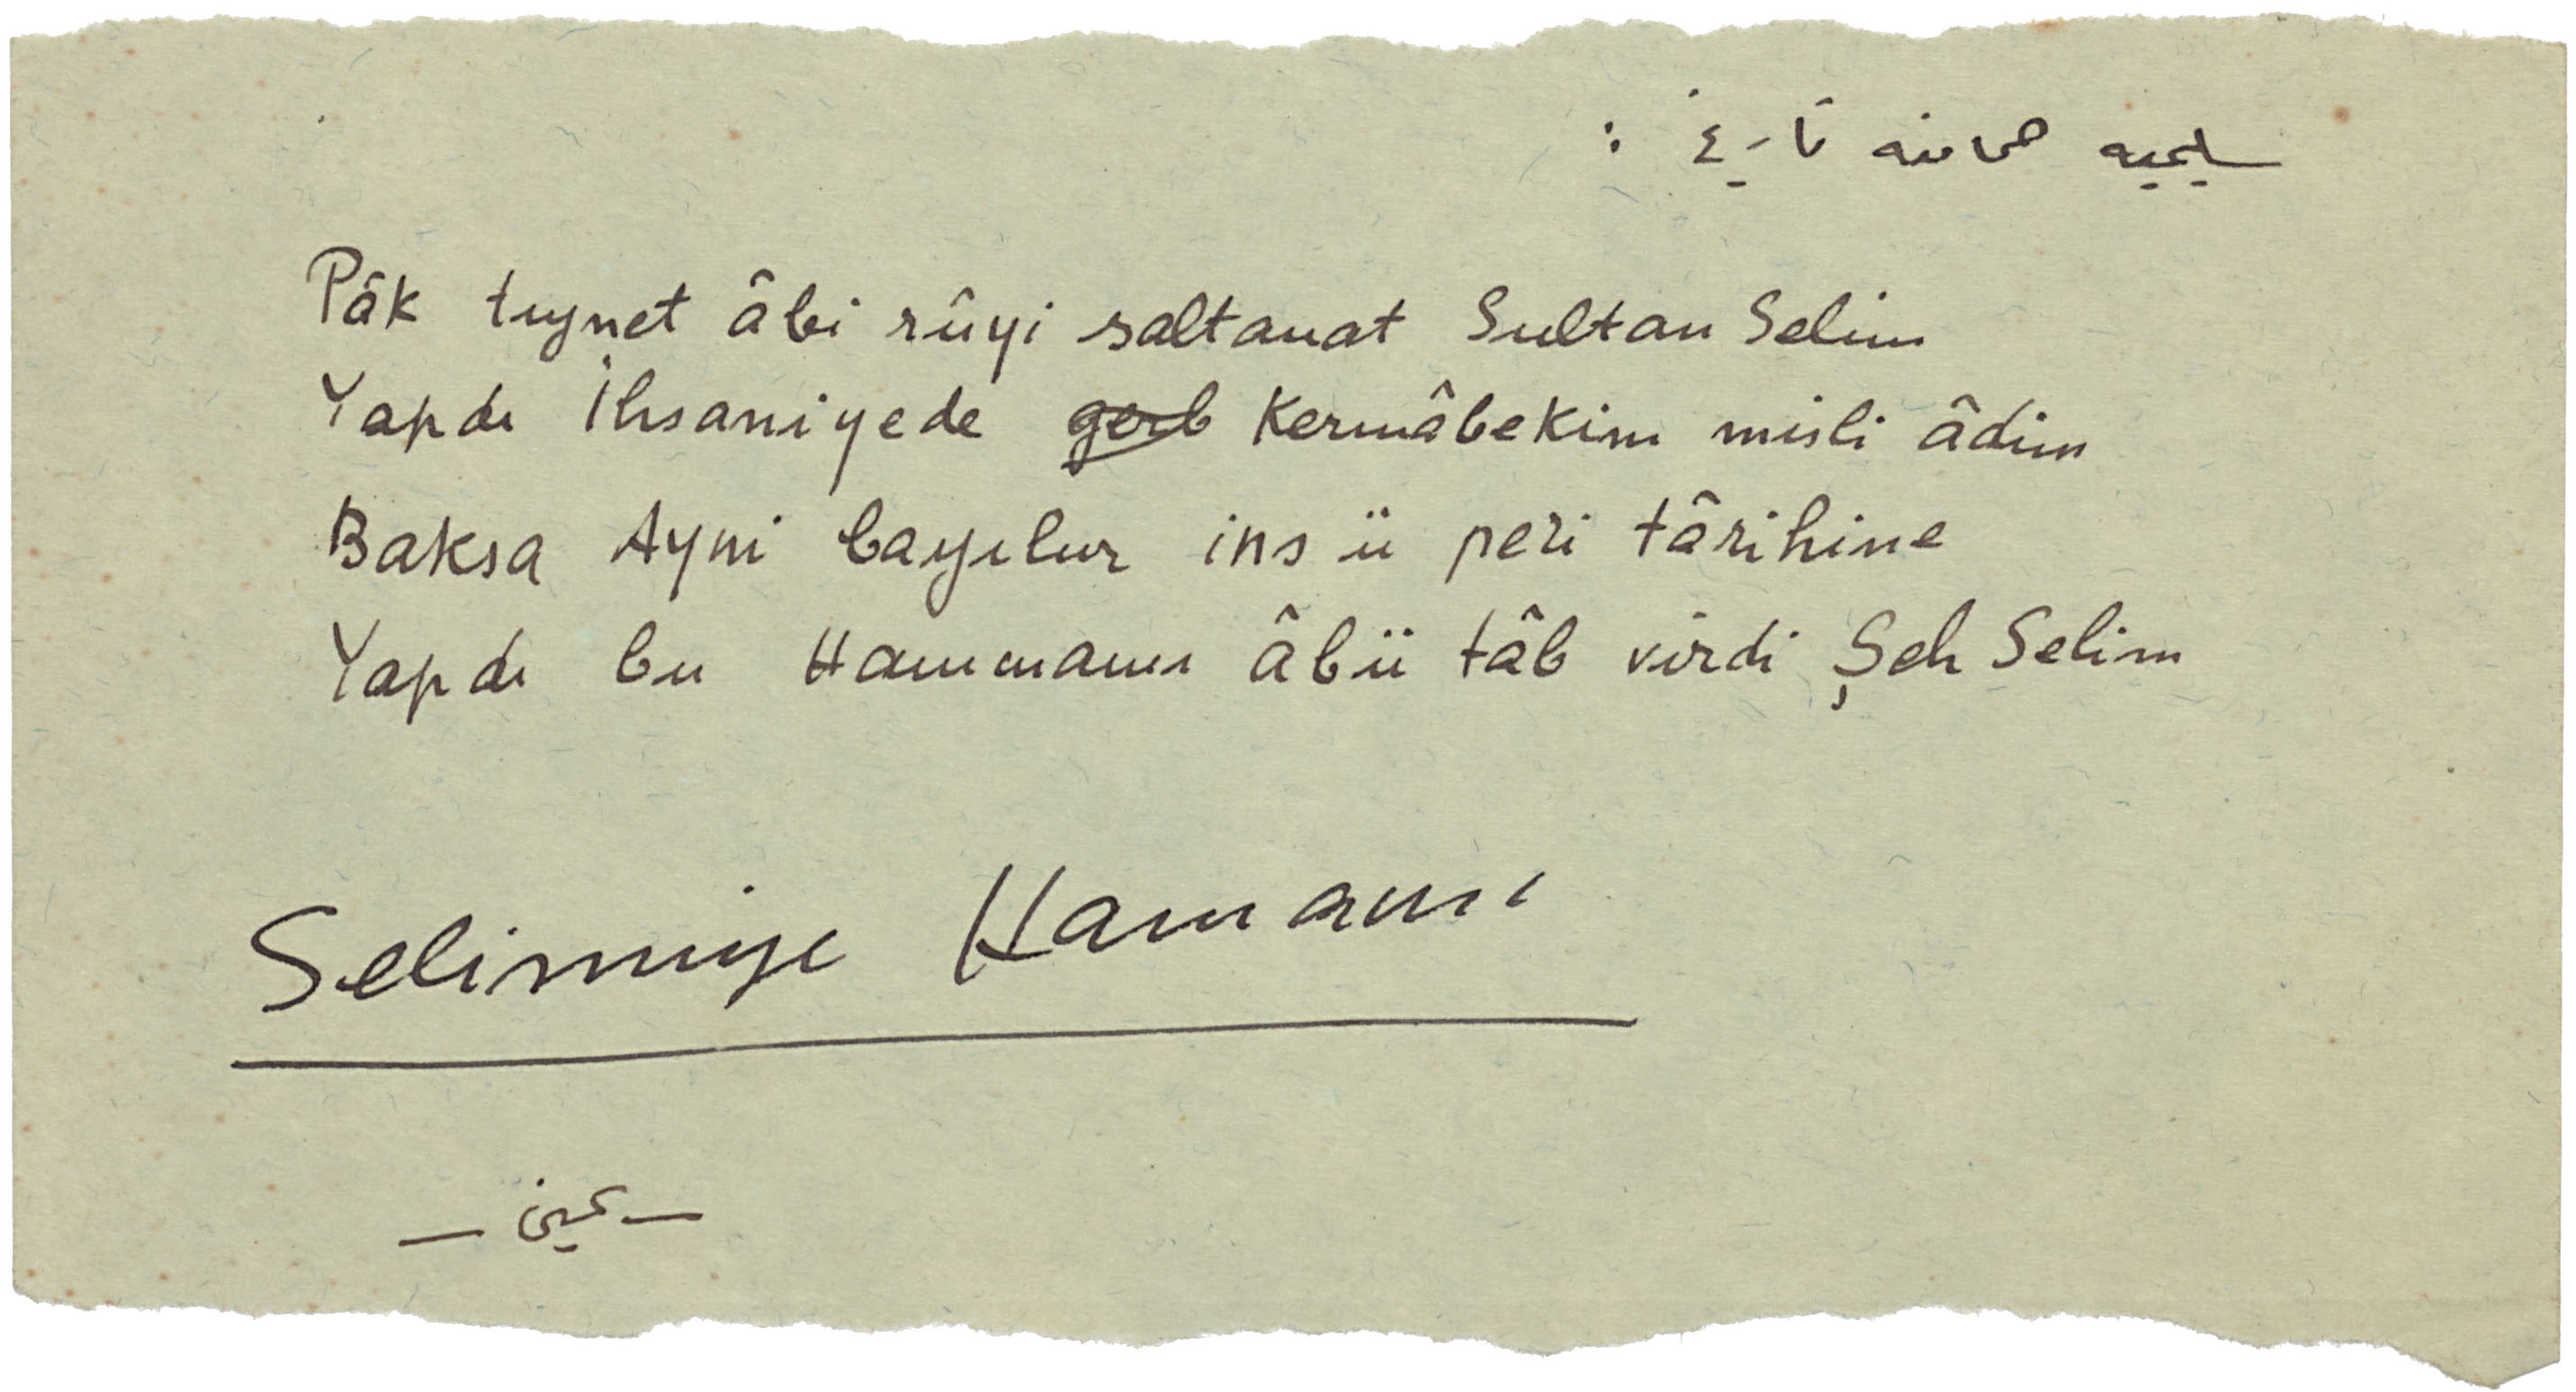 سليميه حمامنه تاريخ :
Pâk tıynet âbi rûyi saltanat Sultan Selim
Yapdı İhsaniyede Kermâbekim misli âdim
Baksa Ayni bayılur ins ü peri târihine
Yapdı bu Hammamı âbü tâb virdi Şeh Selim
Selimiye Hamamı